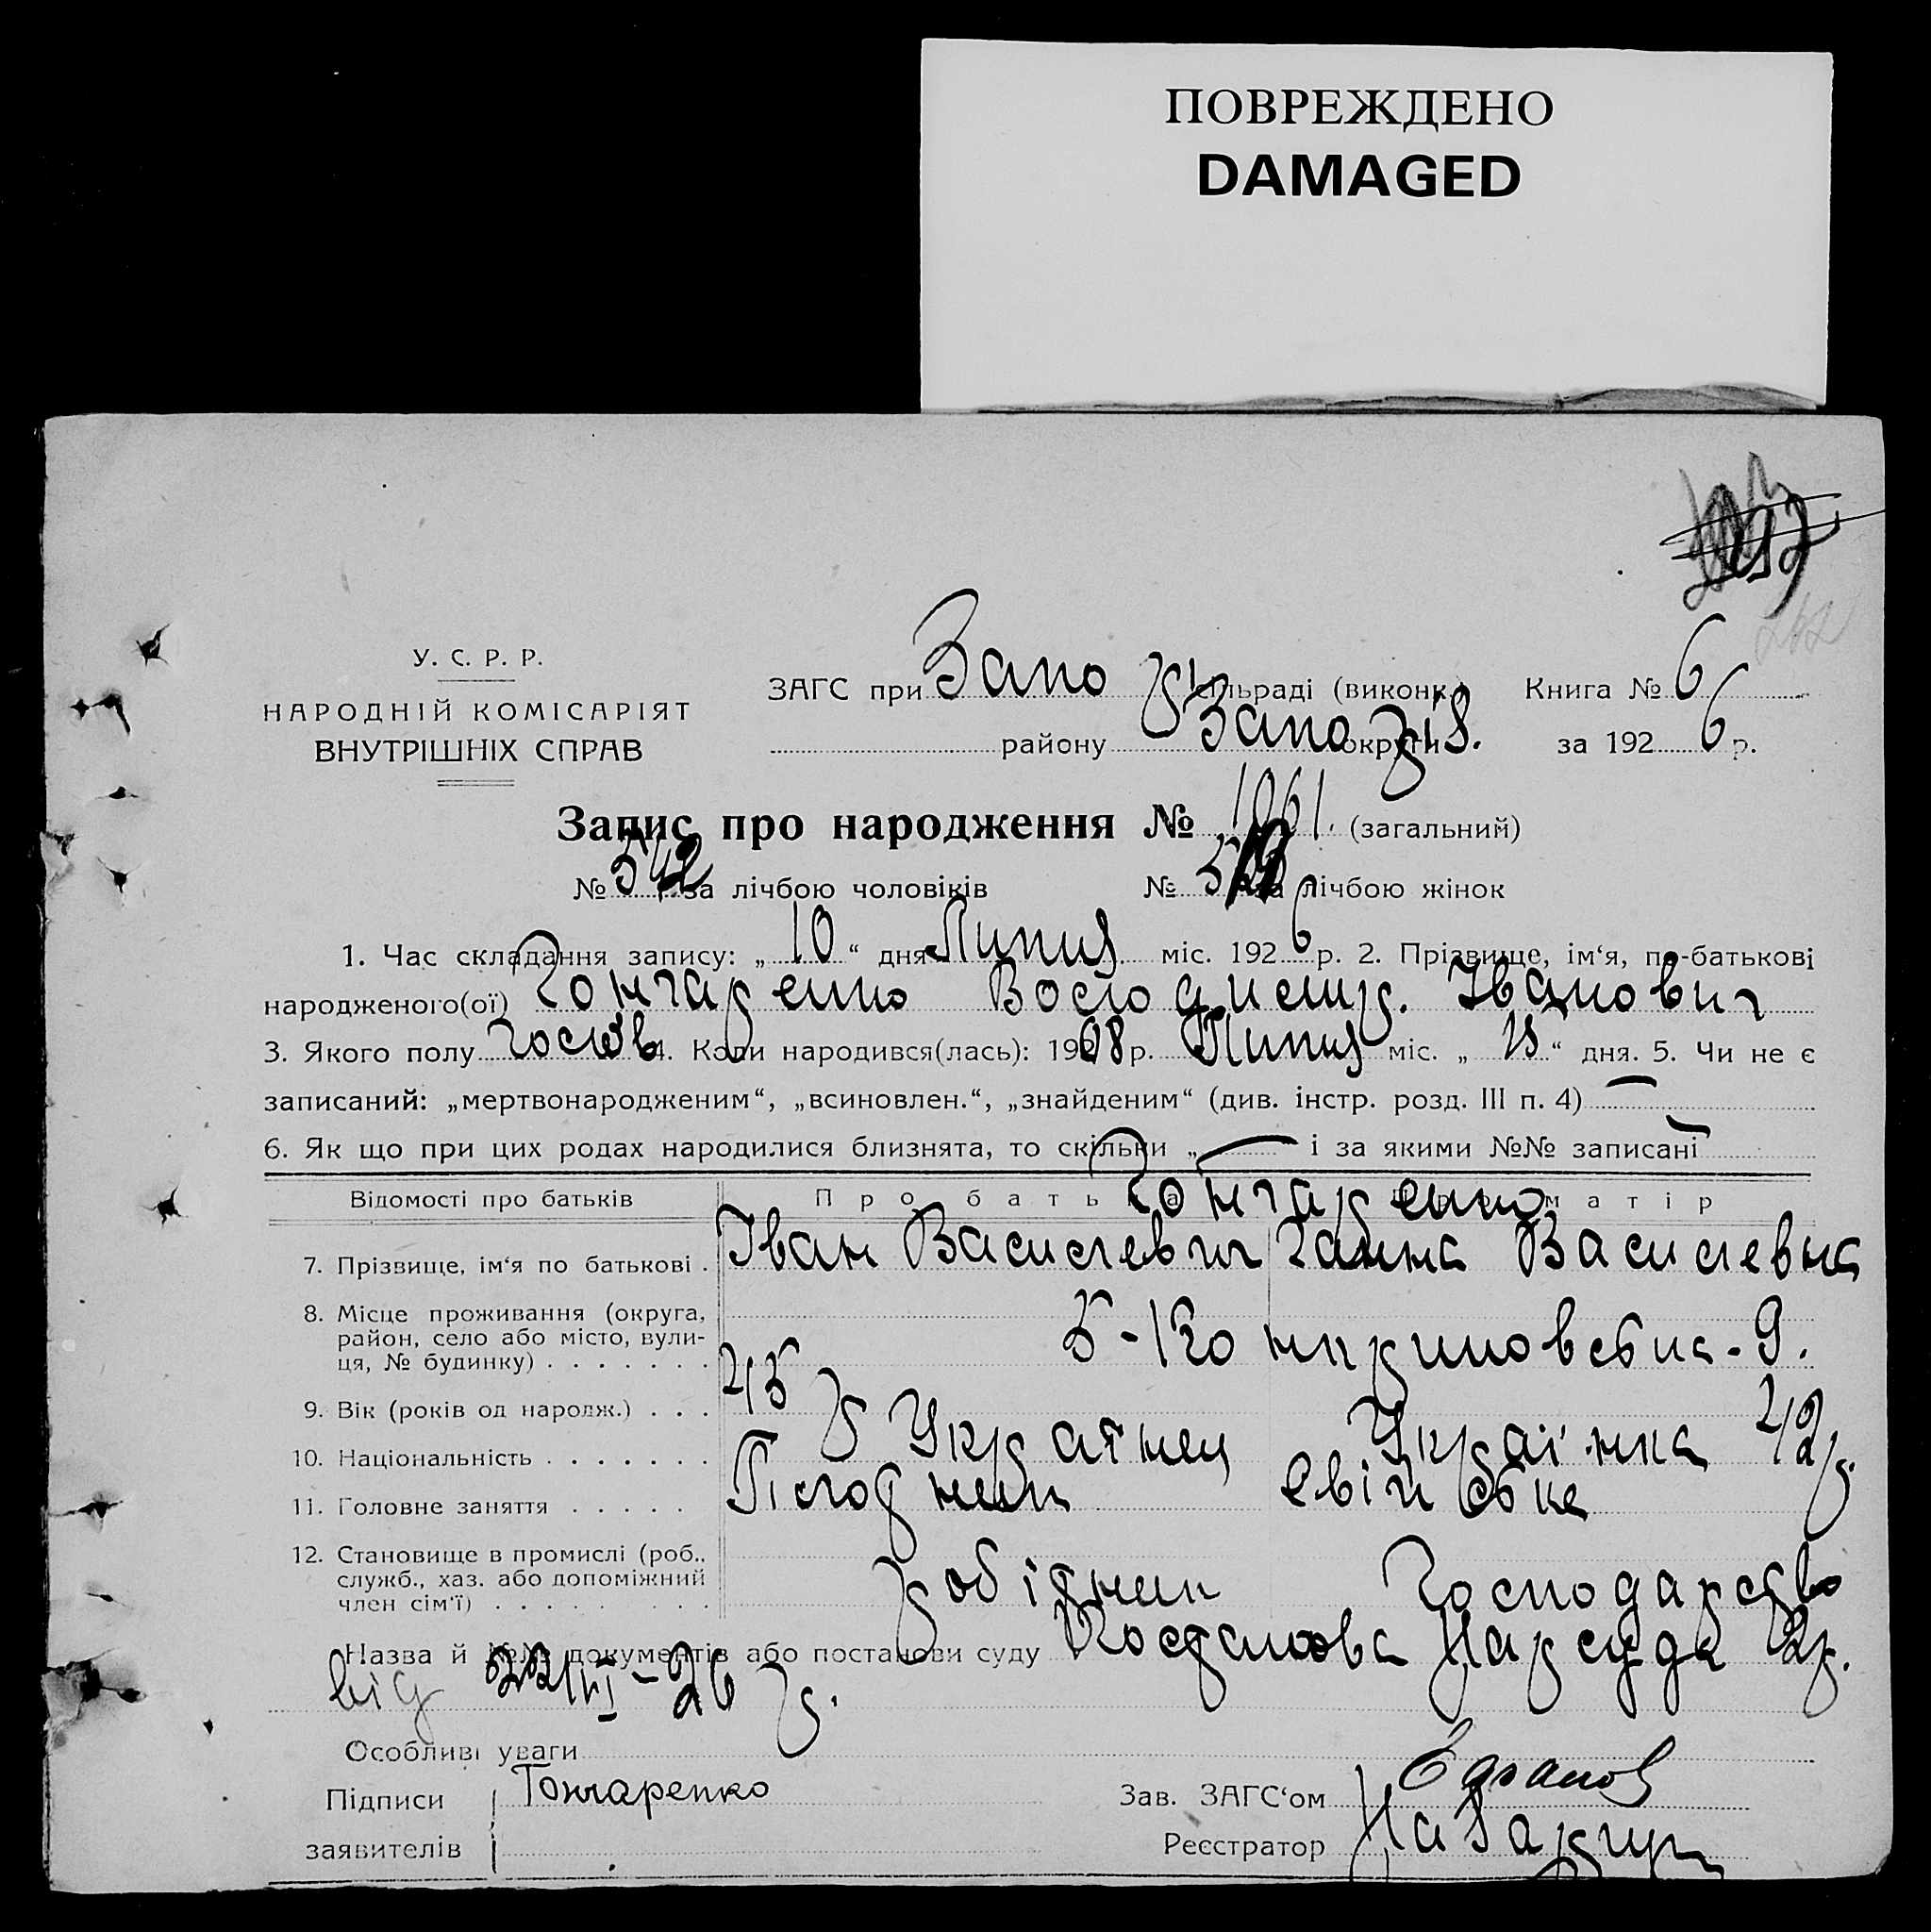 ПОВРЕЖДЕНО
DAMAGED
У. С. Р. Р.
НАРОДНІЙ КОМІСАРІЯТ
ВНУТРІШНІХ СПРАВ
ЗАГС при Запо сільраді (виконк.) Книга № 6
району Запоріз. округи за 1926 р.
Запис про народження № 1061 (загальний)
№ 542 за лічбою чоловіків № за лічбою жінок
1. Час складання запису: „10“ дня Липня міс. 1926 р. 2. Прізвище, ім‘я, по-батькові
народженого(ої) Гончаренко Володимир. Іванович
3. Якого полу чолов 4. Коли народився(лась): 1908 р. Липня міс. „15“ дня. 5. Чи не є
записаний: „мертвонародженим“, „всиновлен.“, „знайденим“ (див. інстр. розд. III п. 4) —
6. Як що при цих родах народилися близнята, то скільки „— і за якими №№ записані —
Відомості про батьків Про батька Про матір
Гончаренко
7. Прізвище, ім‘я по батькові . Іван Василевич Ганна Василевна
8. Місце проживання (округа,
район, село або місто, вули-
ця, № будинку) . . . . . . .
9. Вік (років од народж.) . . . 45 р 42 р.
10. Національність . . . . . . . Українец Українка
11. Головне заняття . . . . . Свійська
12. Становище в промислі (роб.,
служб., хаз. або допоміжний
член сім‘ї) . . . . . . . . робітник Господарство
Назва й №№ документів або постанови суду Постанова Нарсуда 2 р.
від 22/III-26 р.
Особливі уваги
Підписи Гончаренко Зав. ЗАГС‘ом
заявителів Реєстратор